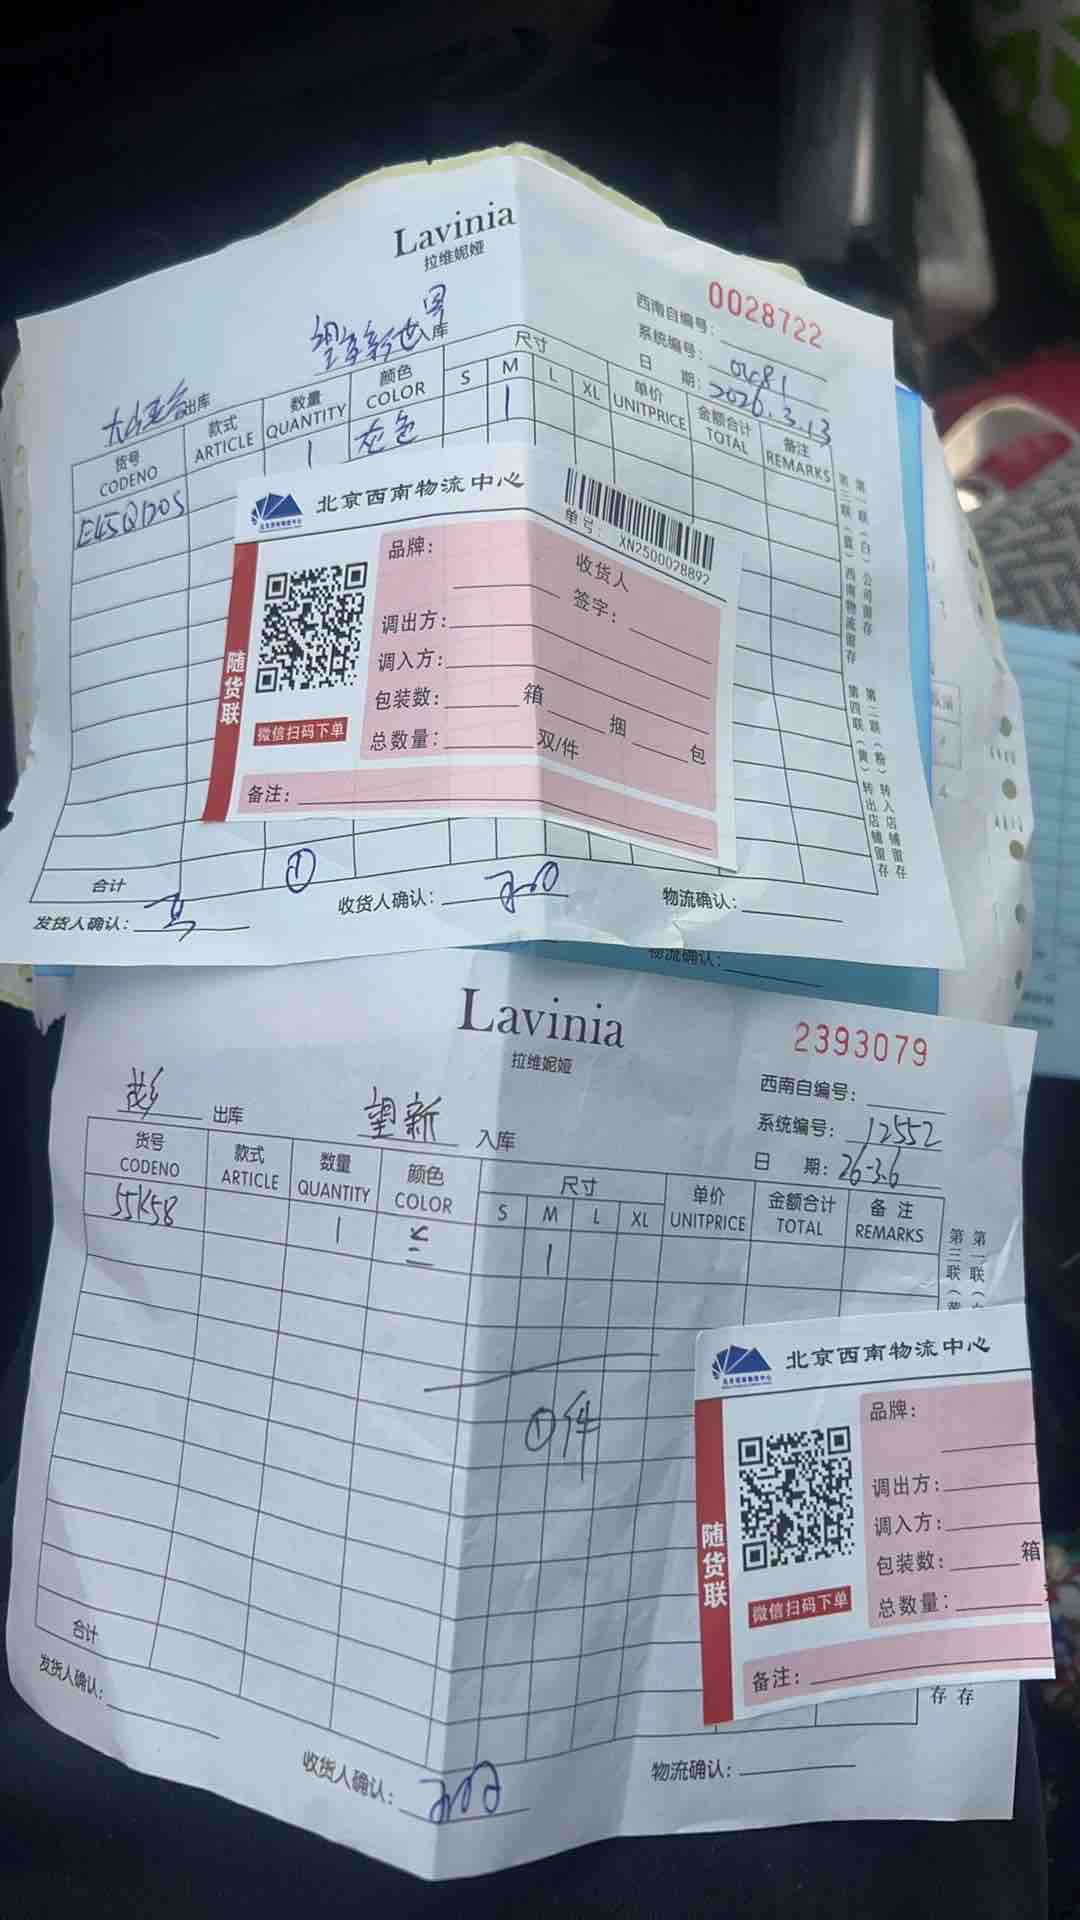 Lavinia
拉维妮娅
0028722
西南自编号:
系统编号: 0681
日 期: 2026.3.13
出库
望京新世界 入库
货号 CODENO
款式 ARTICLE
数量 QUANTITY
颜色 COLOR
尺寸
S M L XL
单价 UNITPRICE
金额合计 TOTAL
备注 REMARKS
E45Q1205 1 灰色 1
北京西南物流中心
单号: XN2500028892
品牌:
收货人
签字:
调出方:
调入方:
包装数: 箱 捆 包
总数量: 双/件
随货联
微信扫码下单
备注:
第一联（白）公司留存
第二联（粉）转入店铺留存
第三联（蓝）西南物流留存
第四联（黄）转出店铺留存
合计 ①
发货人确认:
收货人确认:
物流确认:
物流确认:
Lavinia
拉维妮娅
2393079
西南自编号:
系统编号: 12552
日 期: 26-3.6
出库
望新 入库
货号 CODENO
款式 ARTICLE
数量 QUANTITY
颜色 COLOR
尺寸
S M L XL
单价 UNITPRICE
金额合计 TOTAL
备注 REMARKS
55K58 1 红 1
①件
第一联（
第三联（
北京西南物流中心
品牌:
调出方:
调入方:
包装数: 箱
总数量:
随货联
微信扫码下单
备注:
存 存
合计
发货人确认:
收货人确认:
物流确认: